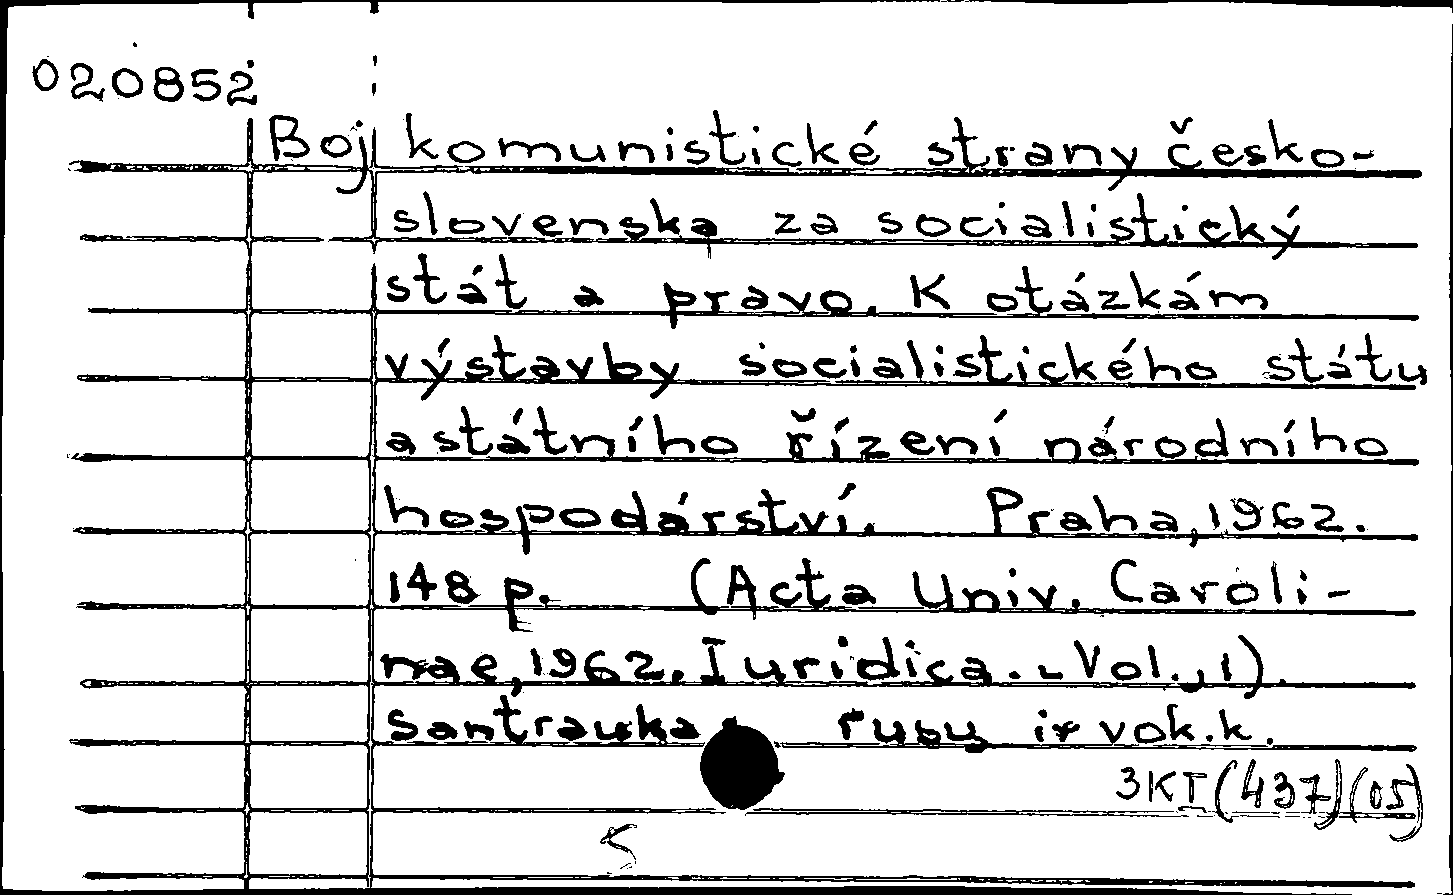 020852
Boj komunistické strany česko-
slovenska za socialistický
stát a pravo. K otázkám
výstavby socialistického státu
a státního řízení národního
hospodárství. Praha, 1962.
148 p. (Acta Univ. Caroli-
nae, 1962. Iuridica. - Vol., 1).
Santrauka: rusų ir vok. k.
3KI(437)(05)
5